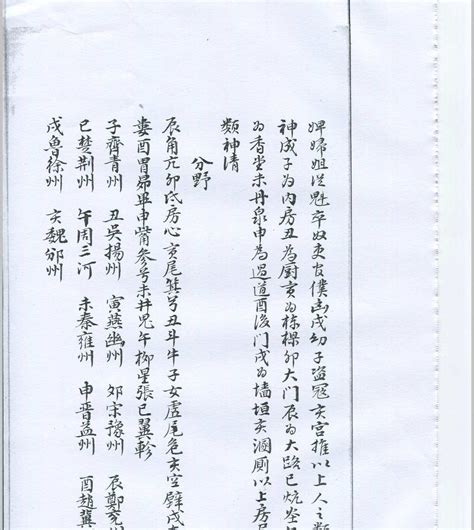 婢婦姐从魁卒奴吏僕戌幼子盗冦亥宫推以上人之類
神成子为内房丑为厨亥为栋樑卯大门辰为大路巳炕
为香堂未丹泉申為過道酉後门戌为墙垣亥溷厕以上房
類神清
分野
辰角亢卯氐房心亥尾箕兮丑斗牛子女虚尾危亥室壁戌
婁酉胃昴畢申觜参兮未井鬼午柳星張巳翼軫
子齊青州 丑吳揚州 寅燕幽州 卯宋豫州 辰鄭兗
巳楚荆州 午周三河 未秦雍州 申晋益州 酉趙冀
戌魯徐州 亥魏邠州